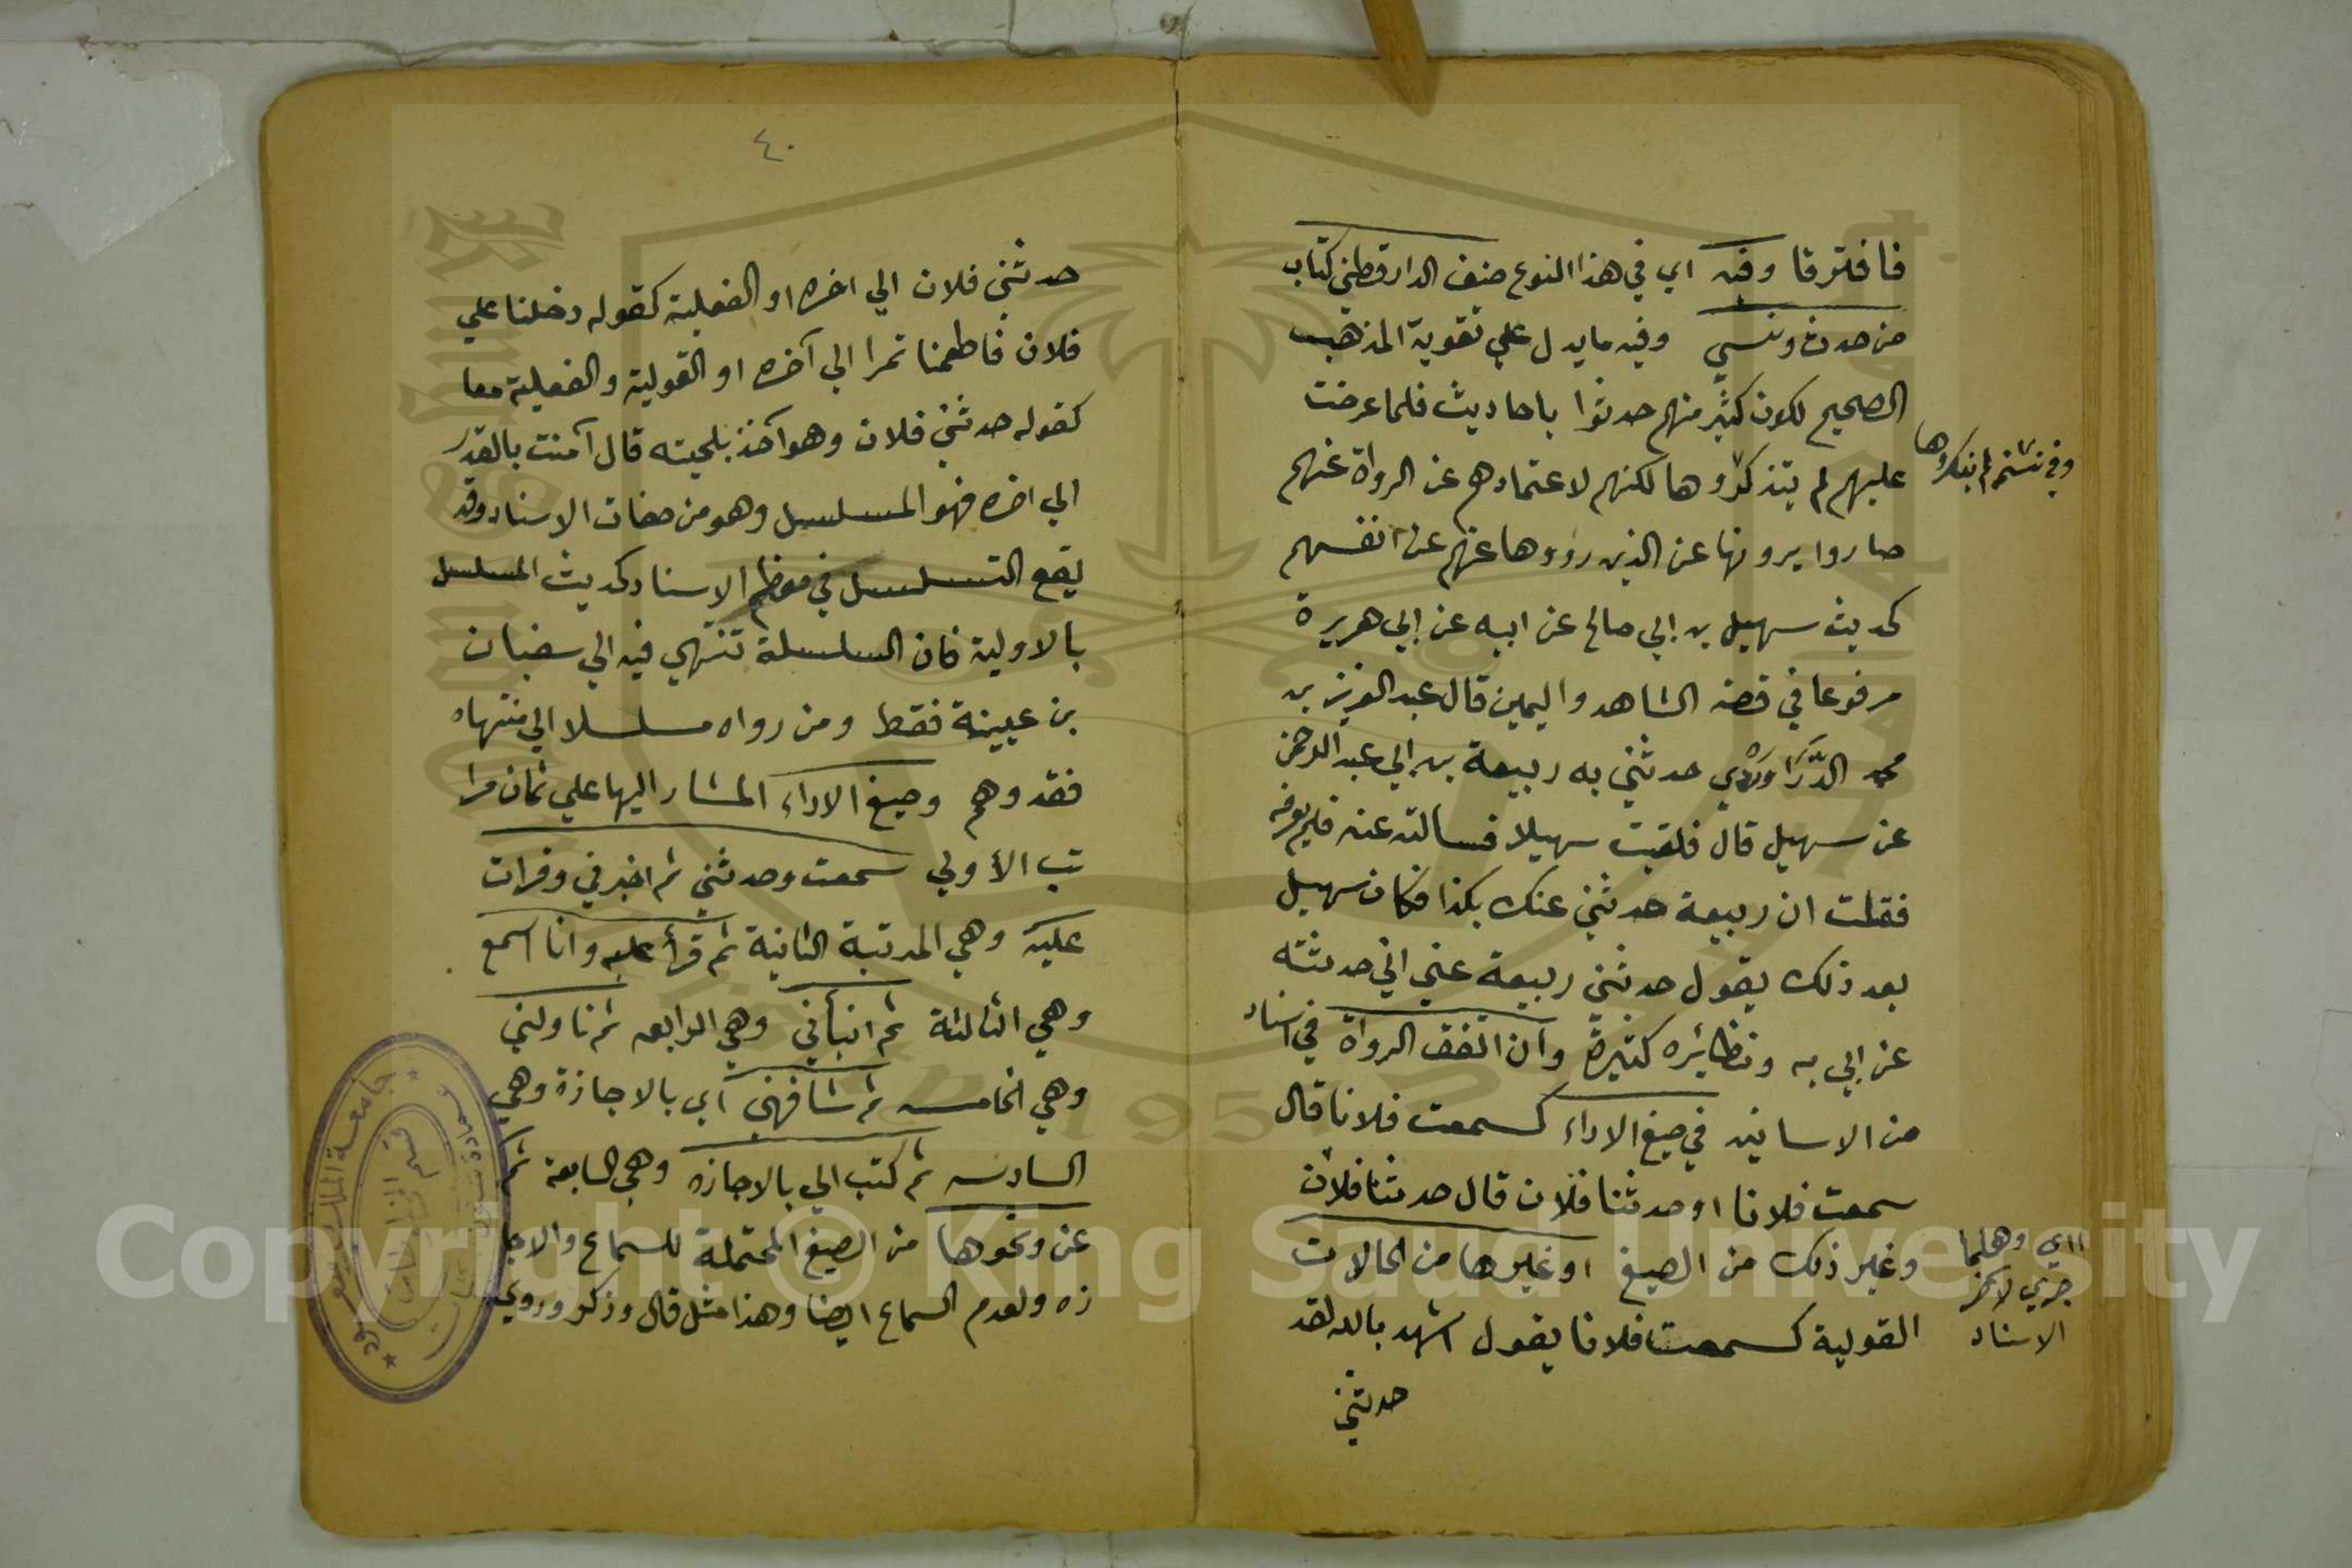 فافترقا وفيه اي في هذا النوع صنف الدارقطني كتاب
من حدث ونسي وفيه ما يدل علي تقوية المذهب
الصحيح لكون كثير منهم حدثوا باحاديث فلما عرضت
عليهم لم يتذكروها لكنهم لاعتمادهم عن الرواة عنهم
صاروا يروونها عن الذين رووها عنهم عن انفسهم
كحديث سهيل بن ابي صالح عن ابيه عن ابي هريرة
مرفوعا في قصة الشاهد واليمين قال عبد العزيز بن
محمد الدَّرَاوَرْدي حدثني به ربيعة بن ابي عبد الرحمن
عن سهيل قال فلقيت سهيلا فسالته عنه فلم يعرفه
فقلت ان ربيعة حدثني عنك بكذا فكان سهيل
بعد ذلك يقول حدثني ربيعة عني اني حدثته
عن ابي به ونظائره كثيرة وان اتفق الرواة في اسناد
من الاسانيد في صيغ الاداء كسمعت فلانا قال
سمعت فلانا اوحدثنا فلان قال حدثنا فلان
وغير ذلك من الصيغ او غيرها من الحالات
القولية كسمعت فلانا يقول اشهد بالله لقد
حدثني
وفي نسخة لم ينكروها
اي وهلما
جري لآخر
الاسناد
٤٠
حدثني فلان الي اخره او الفعلية كقوله دخلنا علي
فلان فاطعمنا تمرا الي آخره او القولية والفعلية معا
كقوله حدثني فلان وهو آخذ بلحيته قال آمنت بالقدر
الي اخره فهو المسلسل وهو من صفات الاسناد وقد
يقع التسلسل في معظم الاسناد كحديث المسلسل
بالاولية فان السلسلة تنتهي فيه الي سفيان
بن عيينة فقط ومن رواه مسلسلا الي منتهاه
فقد وهم وصيغ الاداء المشار اليها علي ثمان مرا
تب الأولي سمعت وحدثني ثم اخبرني وقرات
عليه وهي المرتبة الثانية ثم قرأ عليه وانا اسمع
وهي الثالثة ثم انبأني وهي الرابعه ثم ناولني
وهي الخامسه ثم شافهني اي بالاجازة وهي
السادسه ثم كتب الي بالاجازه وهي السابعة ثم
عن ونحوها من الصيغ المحتملة للسماع والاجا
زه ولعدم السماع ايضا وهذا مثل قال وذكر وروي
جامعة الملك سعود
Copyright © King Saud University